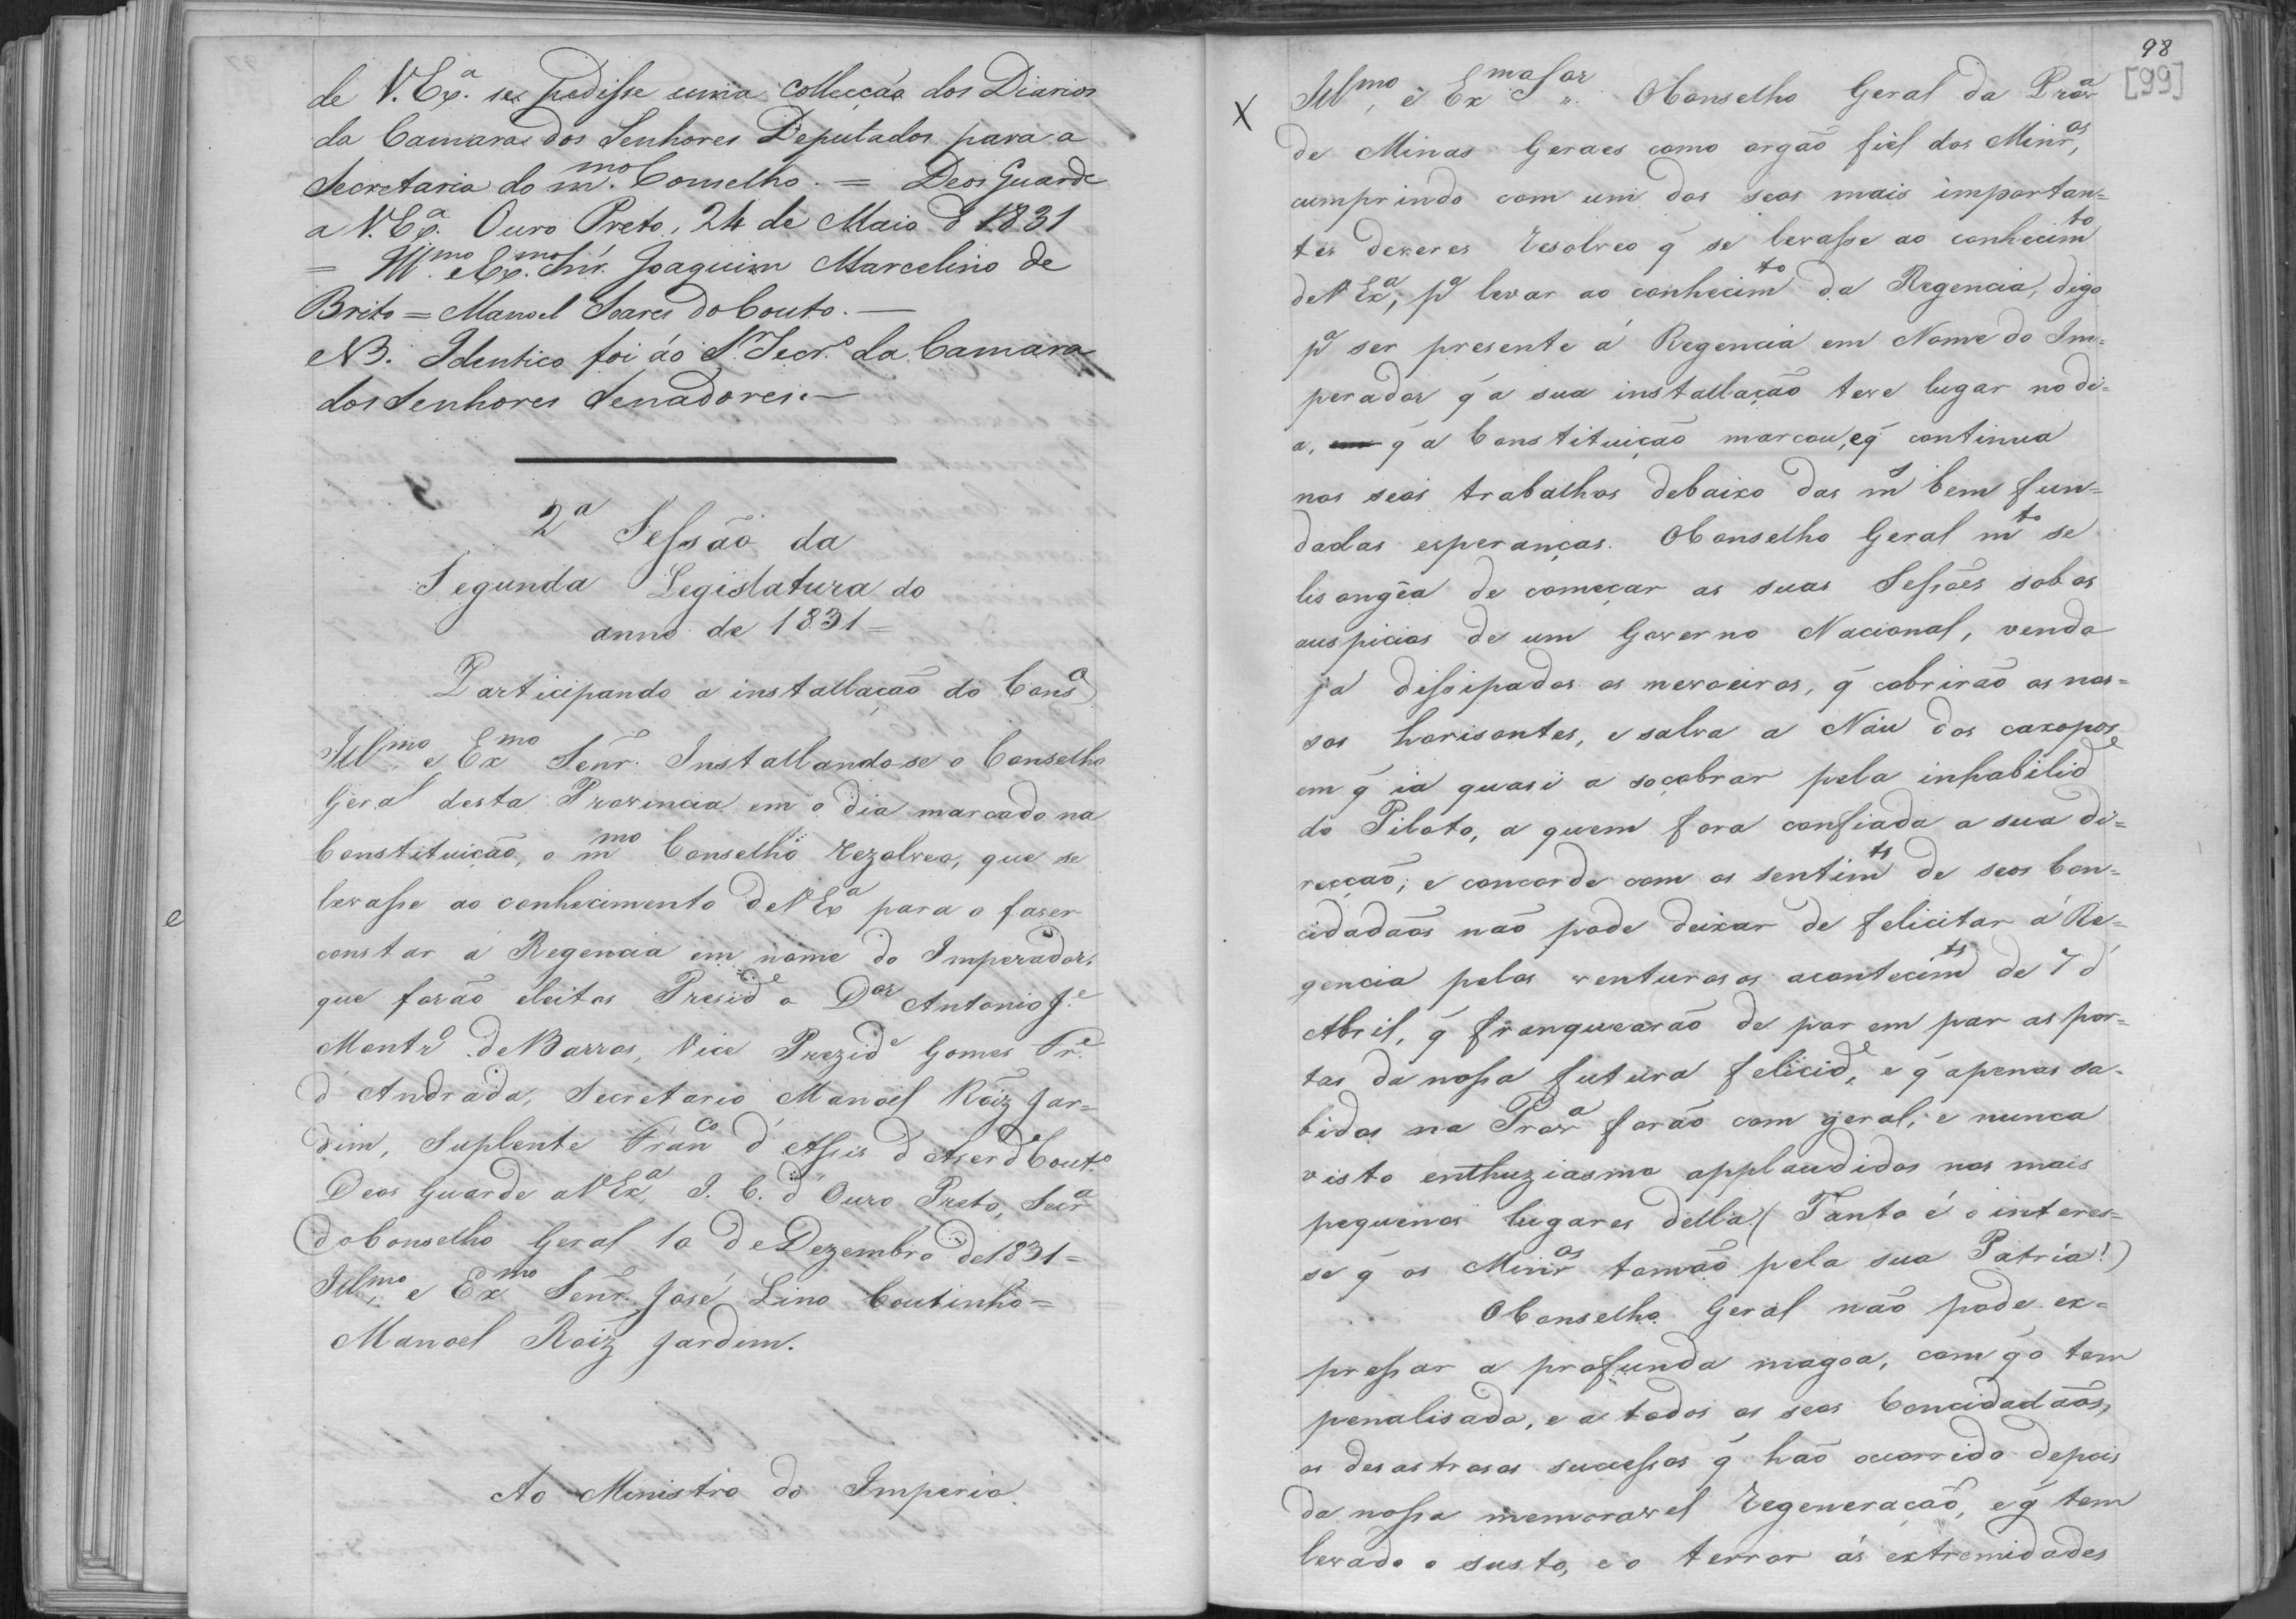 de V. Ex.ª se pedisse uma Collecção dos Diarios
da Camara dos Senhores Deputados para a
Secretaria do m.mo Conselho. = Deos Guarde
a V. Ex.ª Ouro Preto, 24 de Maio d 1831
= Ill.mo e Ex.mo Snr. Joaquim Marcelino de
Brito = Manoel Soares do Couto. —
NB. Identico foi áo Sr. Secr.º da Camara
dos Senhores Senadores. —
2ª Sessão da
Segunda Legislatura do
anno de 1831 =
Participando a installação do Conso
Illmo e Exmo Senr. Installando-se o Conselho
Geral desta Provincia em o dia marcado na
Constituição, o mmo Conselho rezolveo, que se
levasse ao conhecimento de V Exa para o faser
constar á Regencia em nome do Imperador,
que forão eleitos Preside o Dor Antonio Je
Montro de Barros, Vice Prezide Gomes Fre
d' Andrada, Secretario Manoel Roiz Jar=
dim, Suplente Franco d' Assis d' Aserdo Couto
Deos Guarde a V Exa, I. C. d' Ouro Preto, Secra
do Conselho Geral 10 de Dezembro de 1831 =
Illmo e Exmo Senr. José Lino Coutinho =
Manoel Roiz Jardim.
Ao Ministro do Imperio.
98
[99]
X Illmo, e Exmo Sor " O Conselho Geral da Prova
de Minas Geraes como orgão fiel dos Minros,
cumprindo com um dos seos mais importan=
tes deveres resolveo q̃ se levasse ao conhecimto
de V Exa, pa levar ao conhecimto da Regencia, digo
pa ser presente á Regencia em Nome do Im=
perador q̃ a sua installação teve lugar no di=
a, em q̃ a Constituição marcou, e q̃ continua
nos seos trabalhos debaixo das ms bem fun=
dadas esperanças. O Conselho Geral mto se
lisongêa de começar as suas Sessões sob os
auspicios de um Governo Nacional, vendo
já dissipados os nevoeiros, q̃ cobrirão os nos=
sos horisontes, e salva a Náu dos caxopos
em q̃ ia quasi a soçobrar pela inhabilide
do Piloto, a quem fora confiada a sua di=
recção; e concorde com os sentimts de seos Con=
cidadãos não pode deixar de felicitar á Re=
gencia pelos venturosos acontecimts de 7 d'
Abril, q̃ franquearão de par em par as por=
tas da nossa futura felicide, e q̃ apenas sa=
bidos na Prova forão com geral, e nunca
visto enthuziasmo applaudidos nos mais
pequenos lugares della (Tanto é o interes=
se q̃ os Minros tomão pela sua Patria!)
O Conselho Geral não pode ex=
pressar a profunda magoa, com q̃ o tem
penalisado, e a todos os seos Concidadãos,
os desastrosos sucessos q̃ hão ocorrido depois
da nossa memoravel regeneração, e q̃ tem
levado o susto, e o terror ás extremidades
e